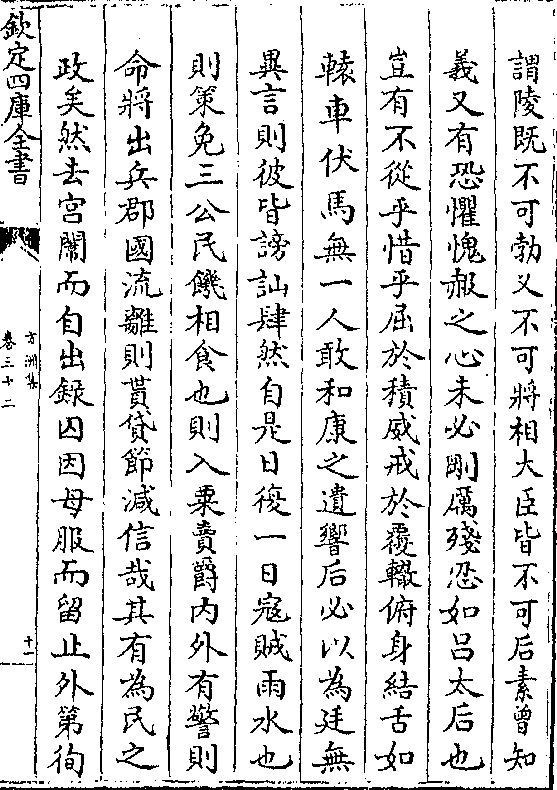 謂陵既不可勃又不可將相大臣皆不可后素曾知
義又有恐懼愧赧之心未必剛厲殘忍如吕太后也
豈有不從乎惜乎屈於積威戒於覆轍俯身結舌如
轅車伏馬無一人敢和康之遺響后必以為廷無
異言則彼皆謗訕肆然自是日復一日寇賊雨水也
則策免三公民饑相食也則入粟賣爵内外有警則
命將出兵郡國流離則貰貸節減信哉其有為民之
政矣然去宫闈而自出録囚因母服而留止外第徇
欽定四庫全書
方洲集
卷三十二
十一